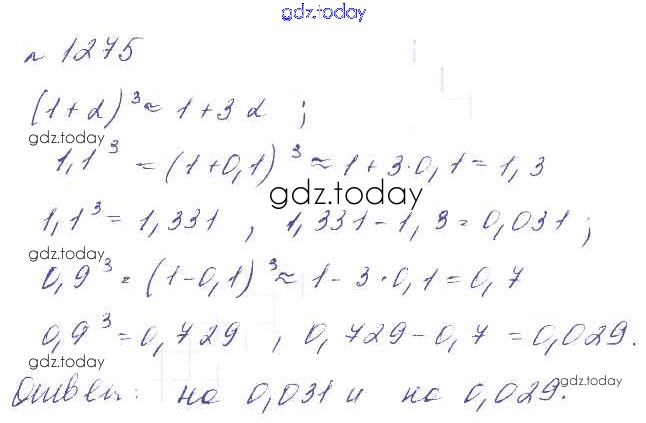 gdz.today
№ 1275
(1+α)³ ≈ 1+3α ;
gdz.today
1,1³ = (1+0,1)³ ≈ 1+3·0,1 = 1,3
gdz.today
1,1³ = 1,331 , 1,331-1,3 = 0,031 ;
gdz.today
0,9³ = (1-0,1)³ ≈ 1-3·0,1 = 0,7
0,9³ = 0,729 , 0,729-0,7 = 0,029.
gdz.today
gdz.today
Ответ: на 0,031 и на 0,029.